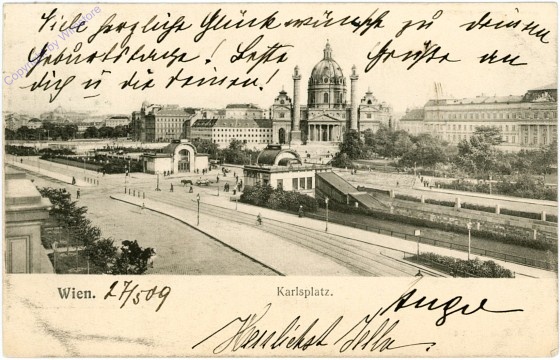 Viele herzliche Glückwünsche zu deinem
Geburtstage! Beste Grüße an
dich u die deinen!
Wien. 27/5 09
Karlsplatz.
Herzlichst